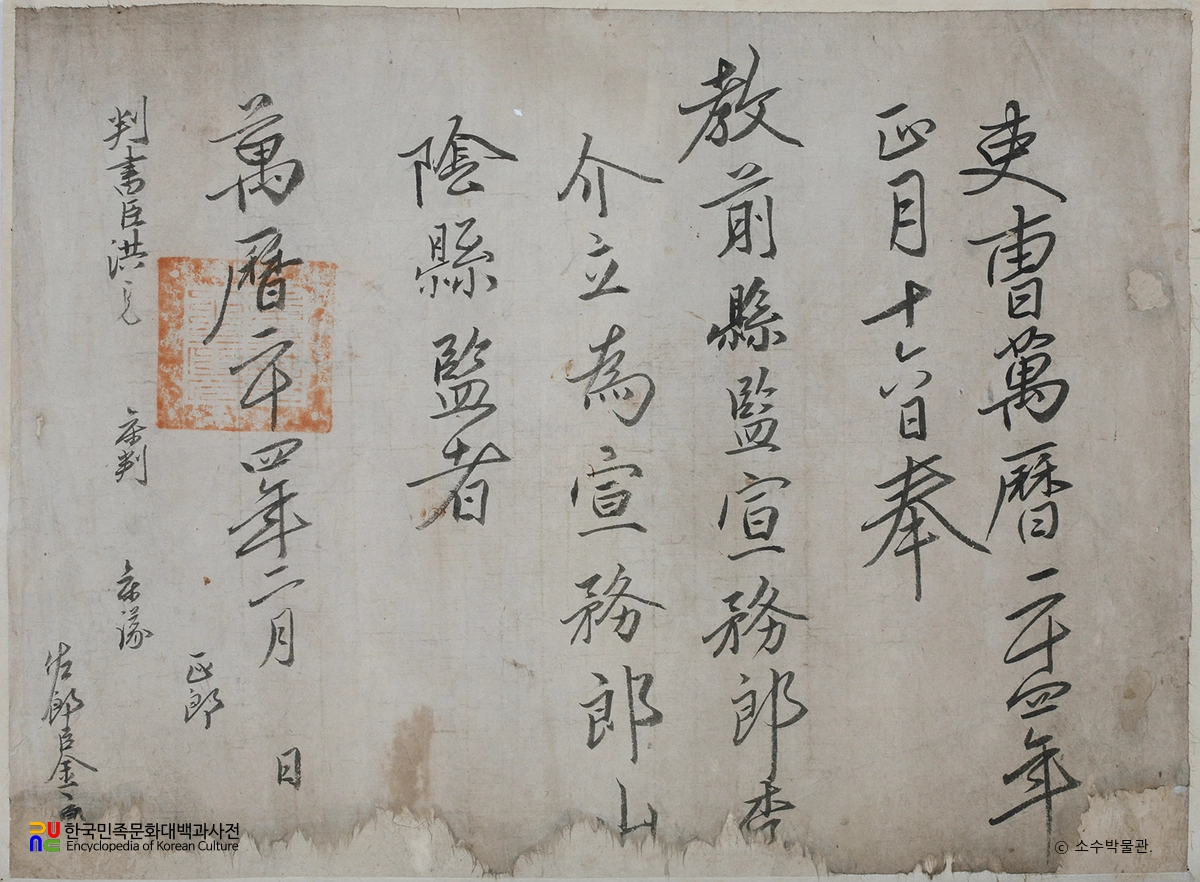 吏曹萬曆二十四年
正月十六日奉
教前縣監宣務郎李
介立爲宣務郎山
陰縣監者
萬曆二十四年二月 日
判書臣洪 參判 參議
正郎
佐郎臣金
한국민족문화대백과사전
Encyclopedia of Korean Culture
ⓒ 소수박물관.